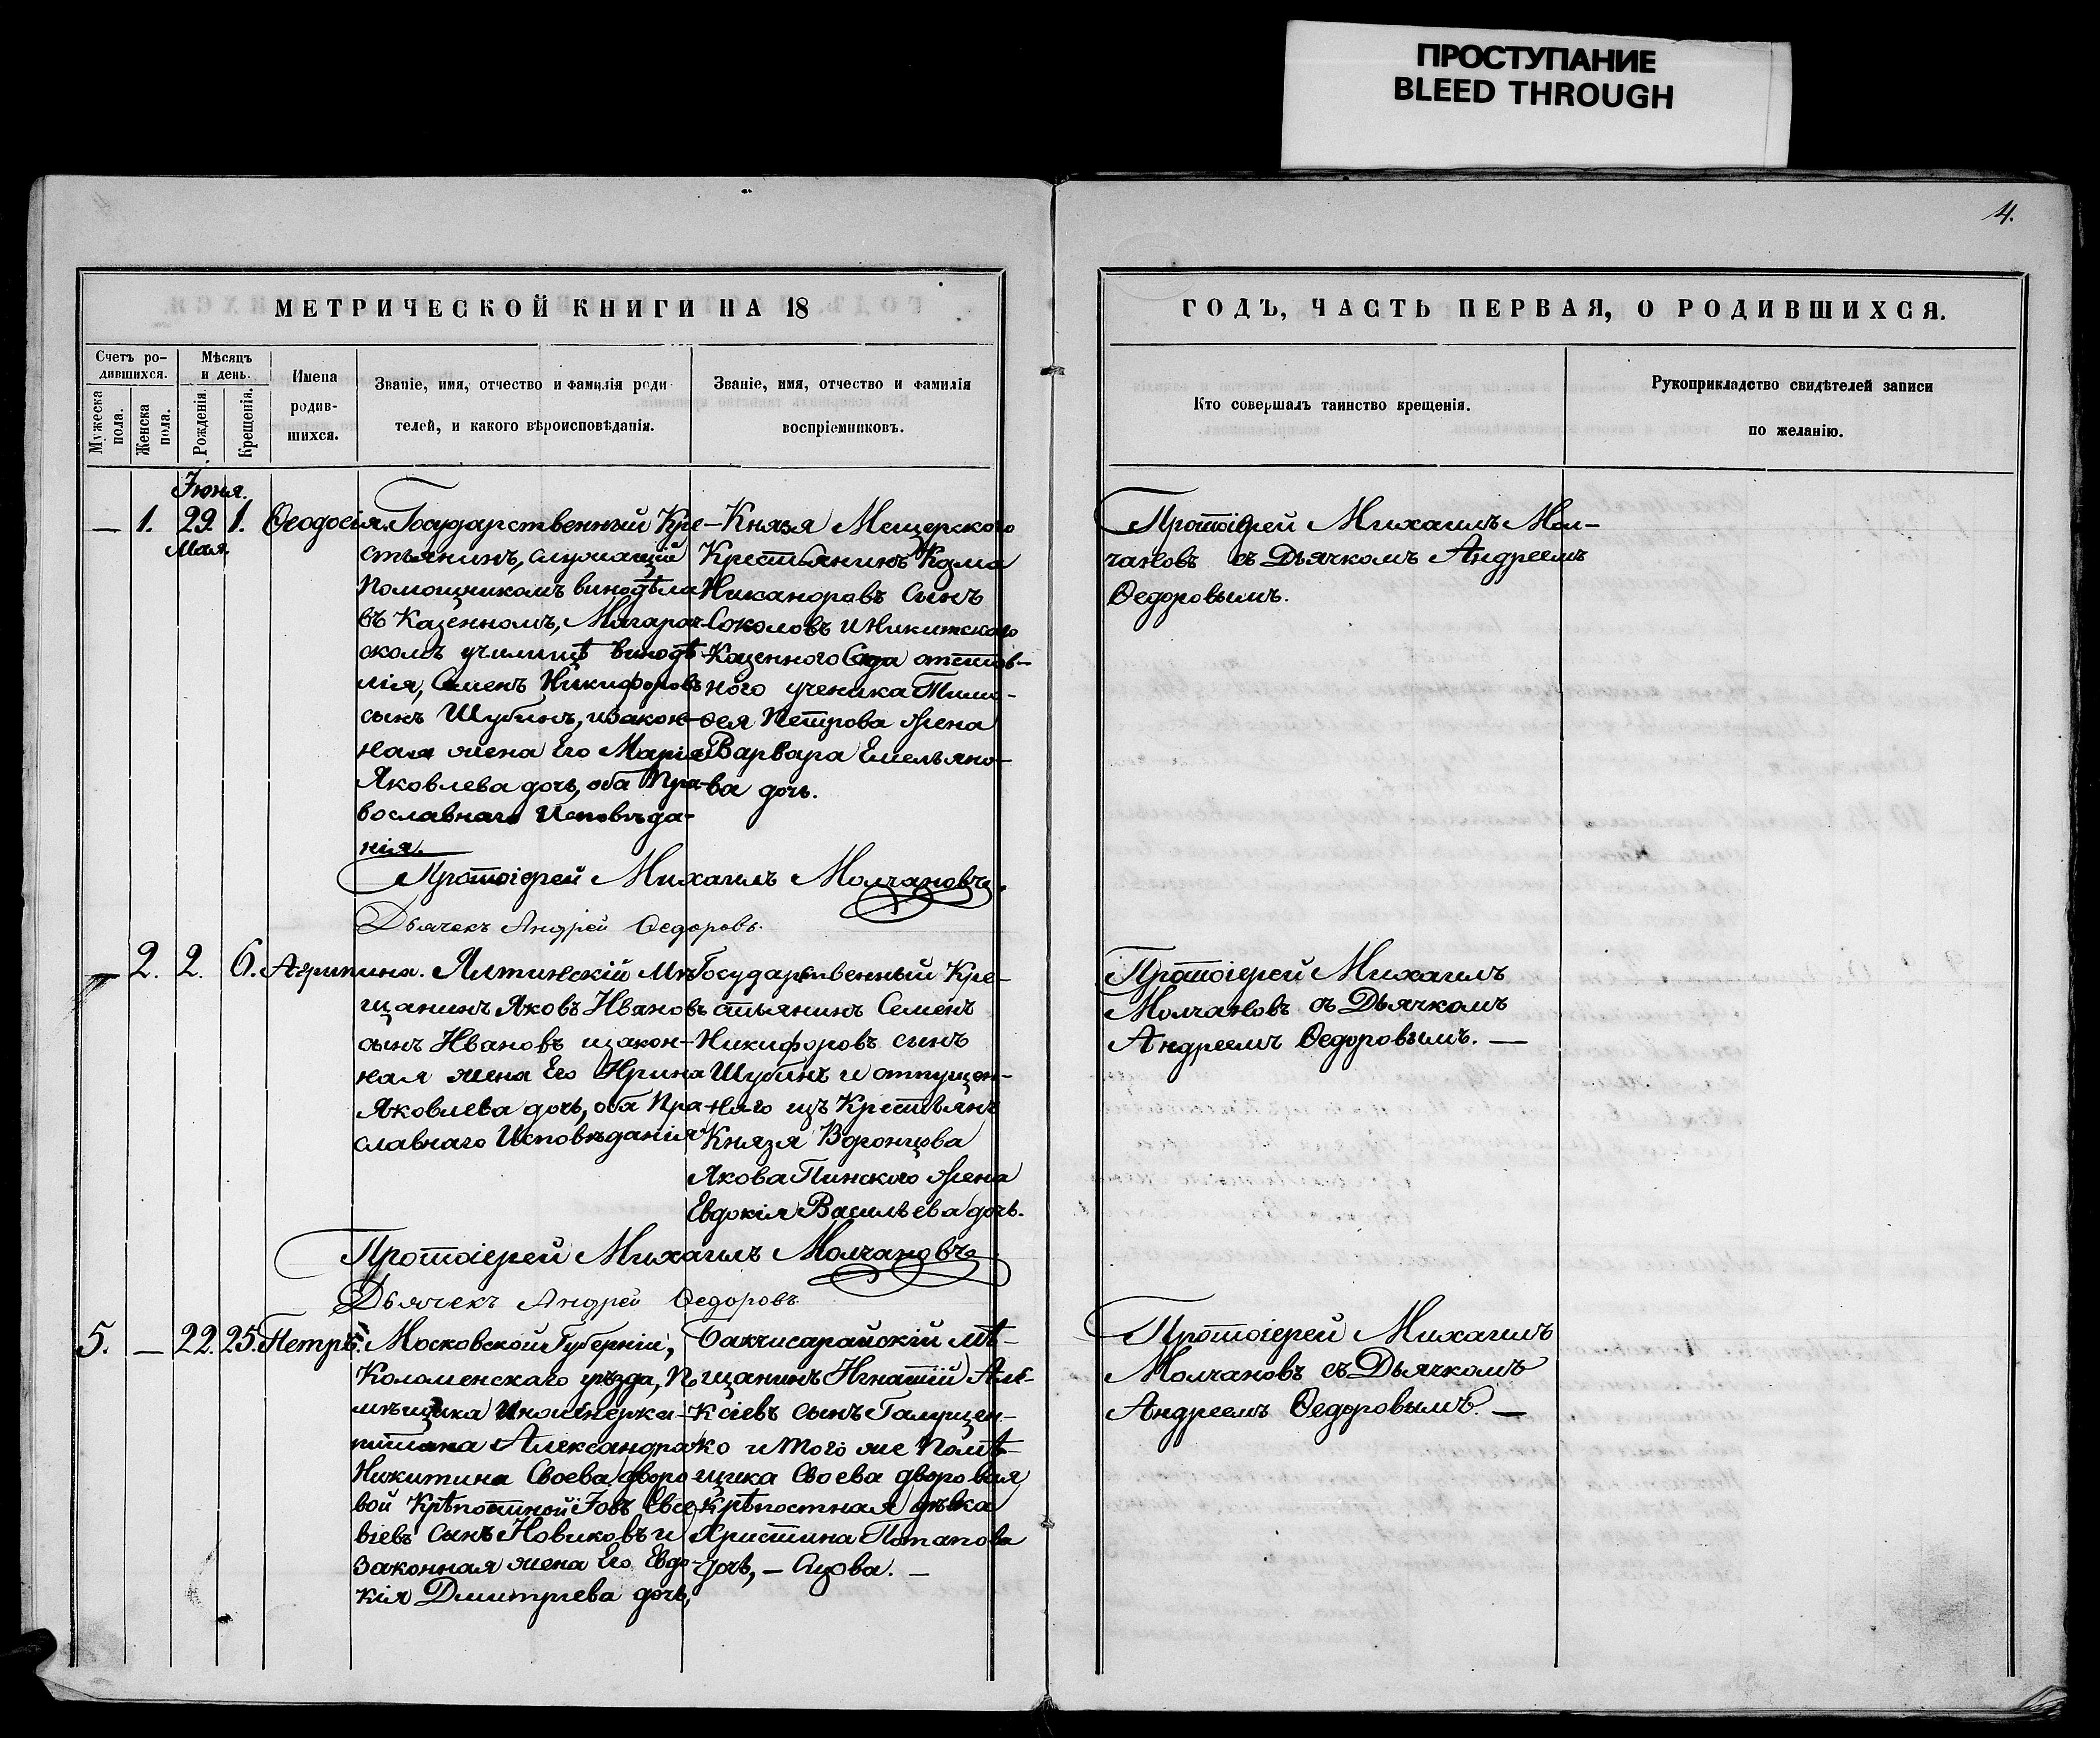 ПРОСТУПАНИЕ
BLEED THROUGH
4.
МЕТРИЧЕСКОЙ КНИГИ НА 18
Счетъ ро-
дившихся.
Мужеска
пола.
Женска
пола.
Мѣсяцъ
и день.
Рожденія.
Крещенія.
Имена
родив-
шихся.
Званіе, имя, отчество и фамилія роди-
телей, и какого вѣроисповѣданія.
Званіе, имя, отчество и фамилія
воспріемниковъ.
Іюня.
— 1. 29. 1. Ѳеодосія.
Мая.
Государственный Кре-
стьянинъ, служащій
Помощникомъ винодѣла
въ Казенномъ, Магарач-
скомъ училищѣ винодѣ-
лія, Семенъ Никифоровъ
сынъ Шубинъ, и закон-
ная жена Его Марія
Яковлева дочь, оба Пра-
вославнаго Исповѣда-
нія.
Князя Мещерского
Крестьянинъ Козма
Никаноровъ сынъ
Соколовъ и Никитского
Казенного Сада
ного ученика Тимо-
ѳея Петрова жена
Варвара Емельяно-
ва дочь.
Протоіерей Михаилъ Молчановъ.
Дьячекъ Андрей Ѳедоровъ.
— 2. 2. 6. Агрипина.
Ялтинскій Мѣ-
щанинъ Яковъ Ивановъ
сынъ Ивановъ и закон-
ная жена Его Ирина
Яковлева дочь, оба Пра-
славнаго Исповѣданія
Государственный Кре-
стьянинъ Семенъ
Никифоровъ сынъ
Шубинъ и отпущен-
наго изъ Крестьянъ
Князя Воронцова
Якова Пинского жена
Евдокія Васильева дочь.
Протоіерей Михаилъ Молчановъ
Дьячекъ Андрей Ѳедоровъ.
5. — 22. 25. Петръ.
Московской Губерніи,
Коломенскаго уѣзда, По-
мѣщика Инженеръ ка-
питана Александра
Никитина Своева дворо-
вой Крѣпостной Іовъ Евсе-
віевъ сынъ Новиковъ и
Законная жена Его Евдо-
кія Дмитріева дочь,
Бахчисарайскій мѣ-
щанинъ Игнатій Але-
ксіевъ сынъ Галущен-
ко и того же Помѣ-
щика Своева дворовая
крѣпостная дѣвка
Христина Потапова
дочь, —
ГОДЪ, ЧАСТЬ ПЕРВАЯ, О РОДИВШИХСЯ.
Кто совершалъ таинство крещенія.
Рукоприкладство свидѣтелей записи
по желанію.
Протоіерей Михаилъ Мол-
чановъ съ Дьячкомъ Андреемъ
Ѳедоровымъ.
Протоіерей Михаилъ
Молчановъ съ Дьячкомъ
Андреемъ Ѳедоровымъ. —
Протоіерей Михаилъ
Молчановъ съ Дьячкомъ
Андреемъ Ѳедоровымъ. —